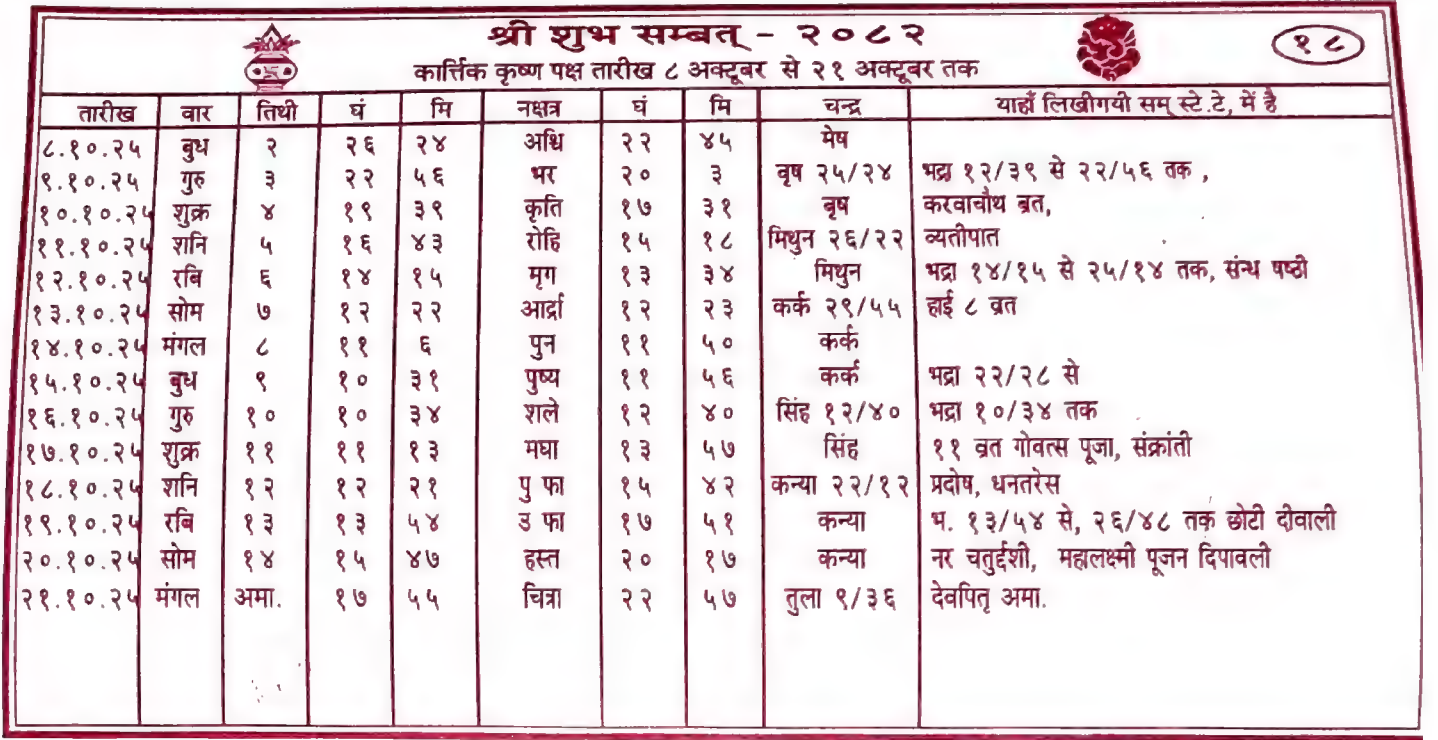 श्री शुभ सम्बत् - २०८२
१८
कार्त्तिक कृष्ण पक्ष तारीख ८ अक्टूबर से २१ अक्टूबर तक
तारीख वार तिथी घं मि नक्षत्र घं मि चन्द्र याहाँ लिखीगयी सम् स्टे.टे, में है
८.१०.२५ बुध २ २६ २४ अश्वि २२ ४५ मेष
९.१०.२५ गुरु ३ २२ ५६ भर २० ३ वृष २५/२४ भद्रा १२/३९ से २२/५६ तक ,
१०.१०.२५ शुक्र ४ १९ ३९ कृति १७ ३१ बृष करवाचौथ ब्रत,
११.१०.२५ शनि ५ १६ ४३ रोहि १५ १८ मिथुन २६/२२ व्यतीपात
१२.१०.२५ रबि ६ १४ १५ मृग १३ ३४ मिथुन भद्रा १४/१५ से २५/१४ तक, संन्ध षष्ठी
१३.१०.२५ सोम ७ १२ २२ आर्द्रा १२ २३ कर्क २९/५५ हाई ८ व्रत
१४.१०.२५ मंगल ८ ११ ६ पुन ११ ५० कर्क
१५.१०.२५ बुध ९ १० ३१ पुष्य ११ ५६ कर्क भद्रा २२/२८ से
१६.१०.२५ गुरु १० १० ३४ शले १२ ४० सिंह १२/४० भद्रा १०/३४ तक
१७.१०.२५ शुक्र ११ ११ १३ मघा १३ ५७ सिंह ११ व्रत गोवत्स पूजा, संक्रांती
१८.१०.२५ शनि १२ १२ २१ पु फा १५ ४२ कन्या २२/१२ प्रदोष, धनतरेस
१९.१०.२५ रबि १३ १३ ५४ उ फा १७ ५१ कन्या भ. १३/५४ से, २६/४८ तक छोटी दीवाली
२०.१०.२५ सोम १४ १५ ४७ हस्त २० १७ कन्या नर चतुर्द्दशी, महालक्ष्मी पूजन दिपावली
२१.१०.२५ मंगल अमा. १७ ५५ चित्रा २२ ५७ तुला ९/३६ देवपितृ अमा.